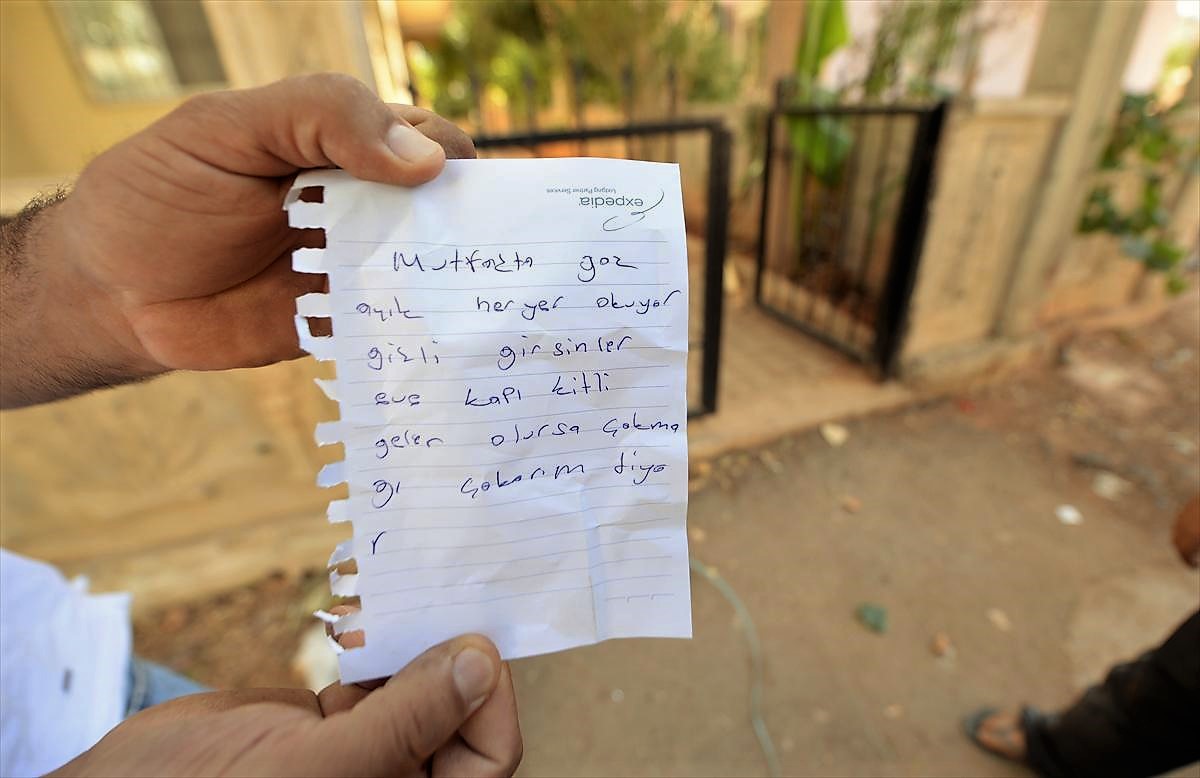 expedia
Lodging Partner Services
Mutfakta goz
açık her yer okuyor
gizli girsinler
kapı kitli
gelen olursa çakma
gı çakarım diyo
r